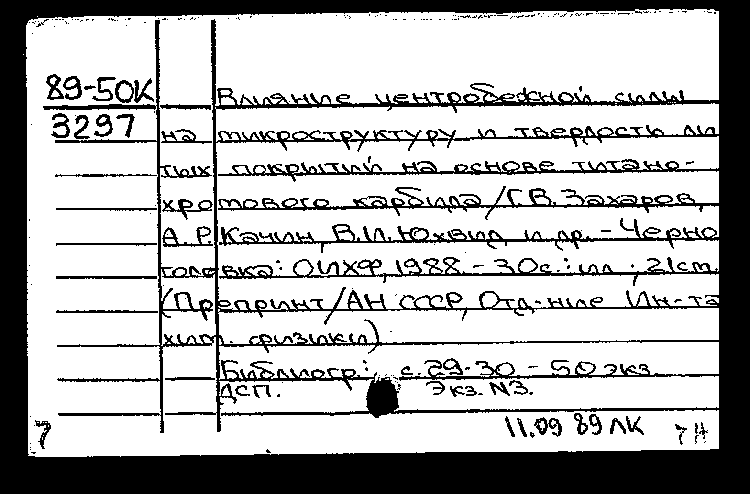 89-50К Влияние центробежной силы
3297 на микроструктуру и твердость ли
тых покрытий на основе титано-
хромового карбида/Г.В. Захаров,
А.Р. Качин, В.И. Юхвид и др. - Черно
головка: ОИХФ, 1988 - 30с.: ил ; 21см.
(Препринт/АН СССР, Отд-ние Ин-та
хим. физики)
Библиогр: с. 29-30 - 50 экз.
ДСП. Экз. N3.
11.09 89 ЛК
7